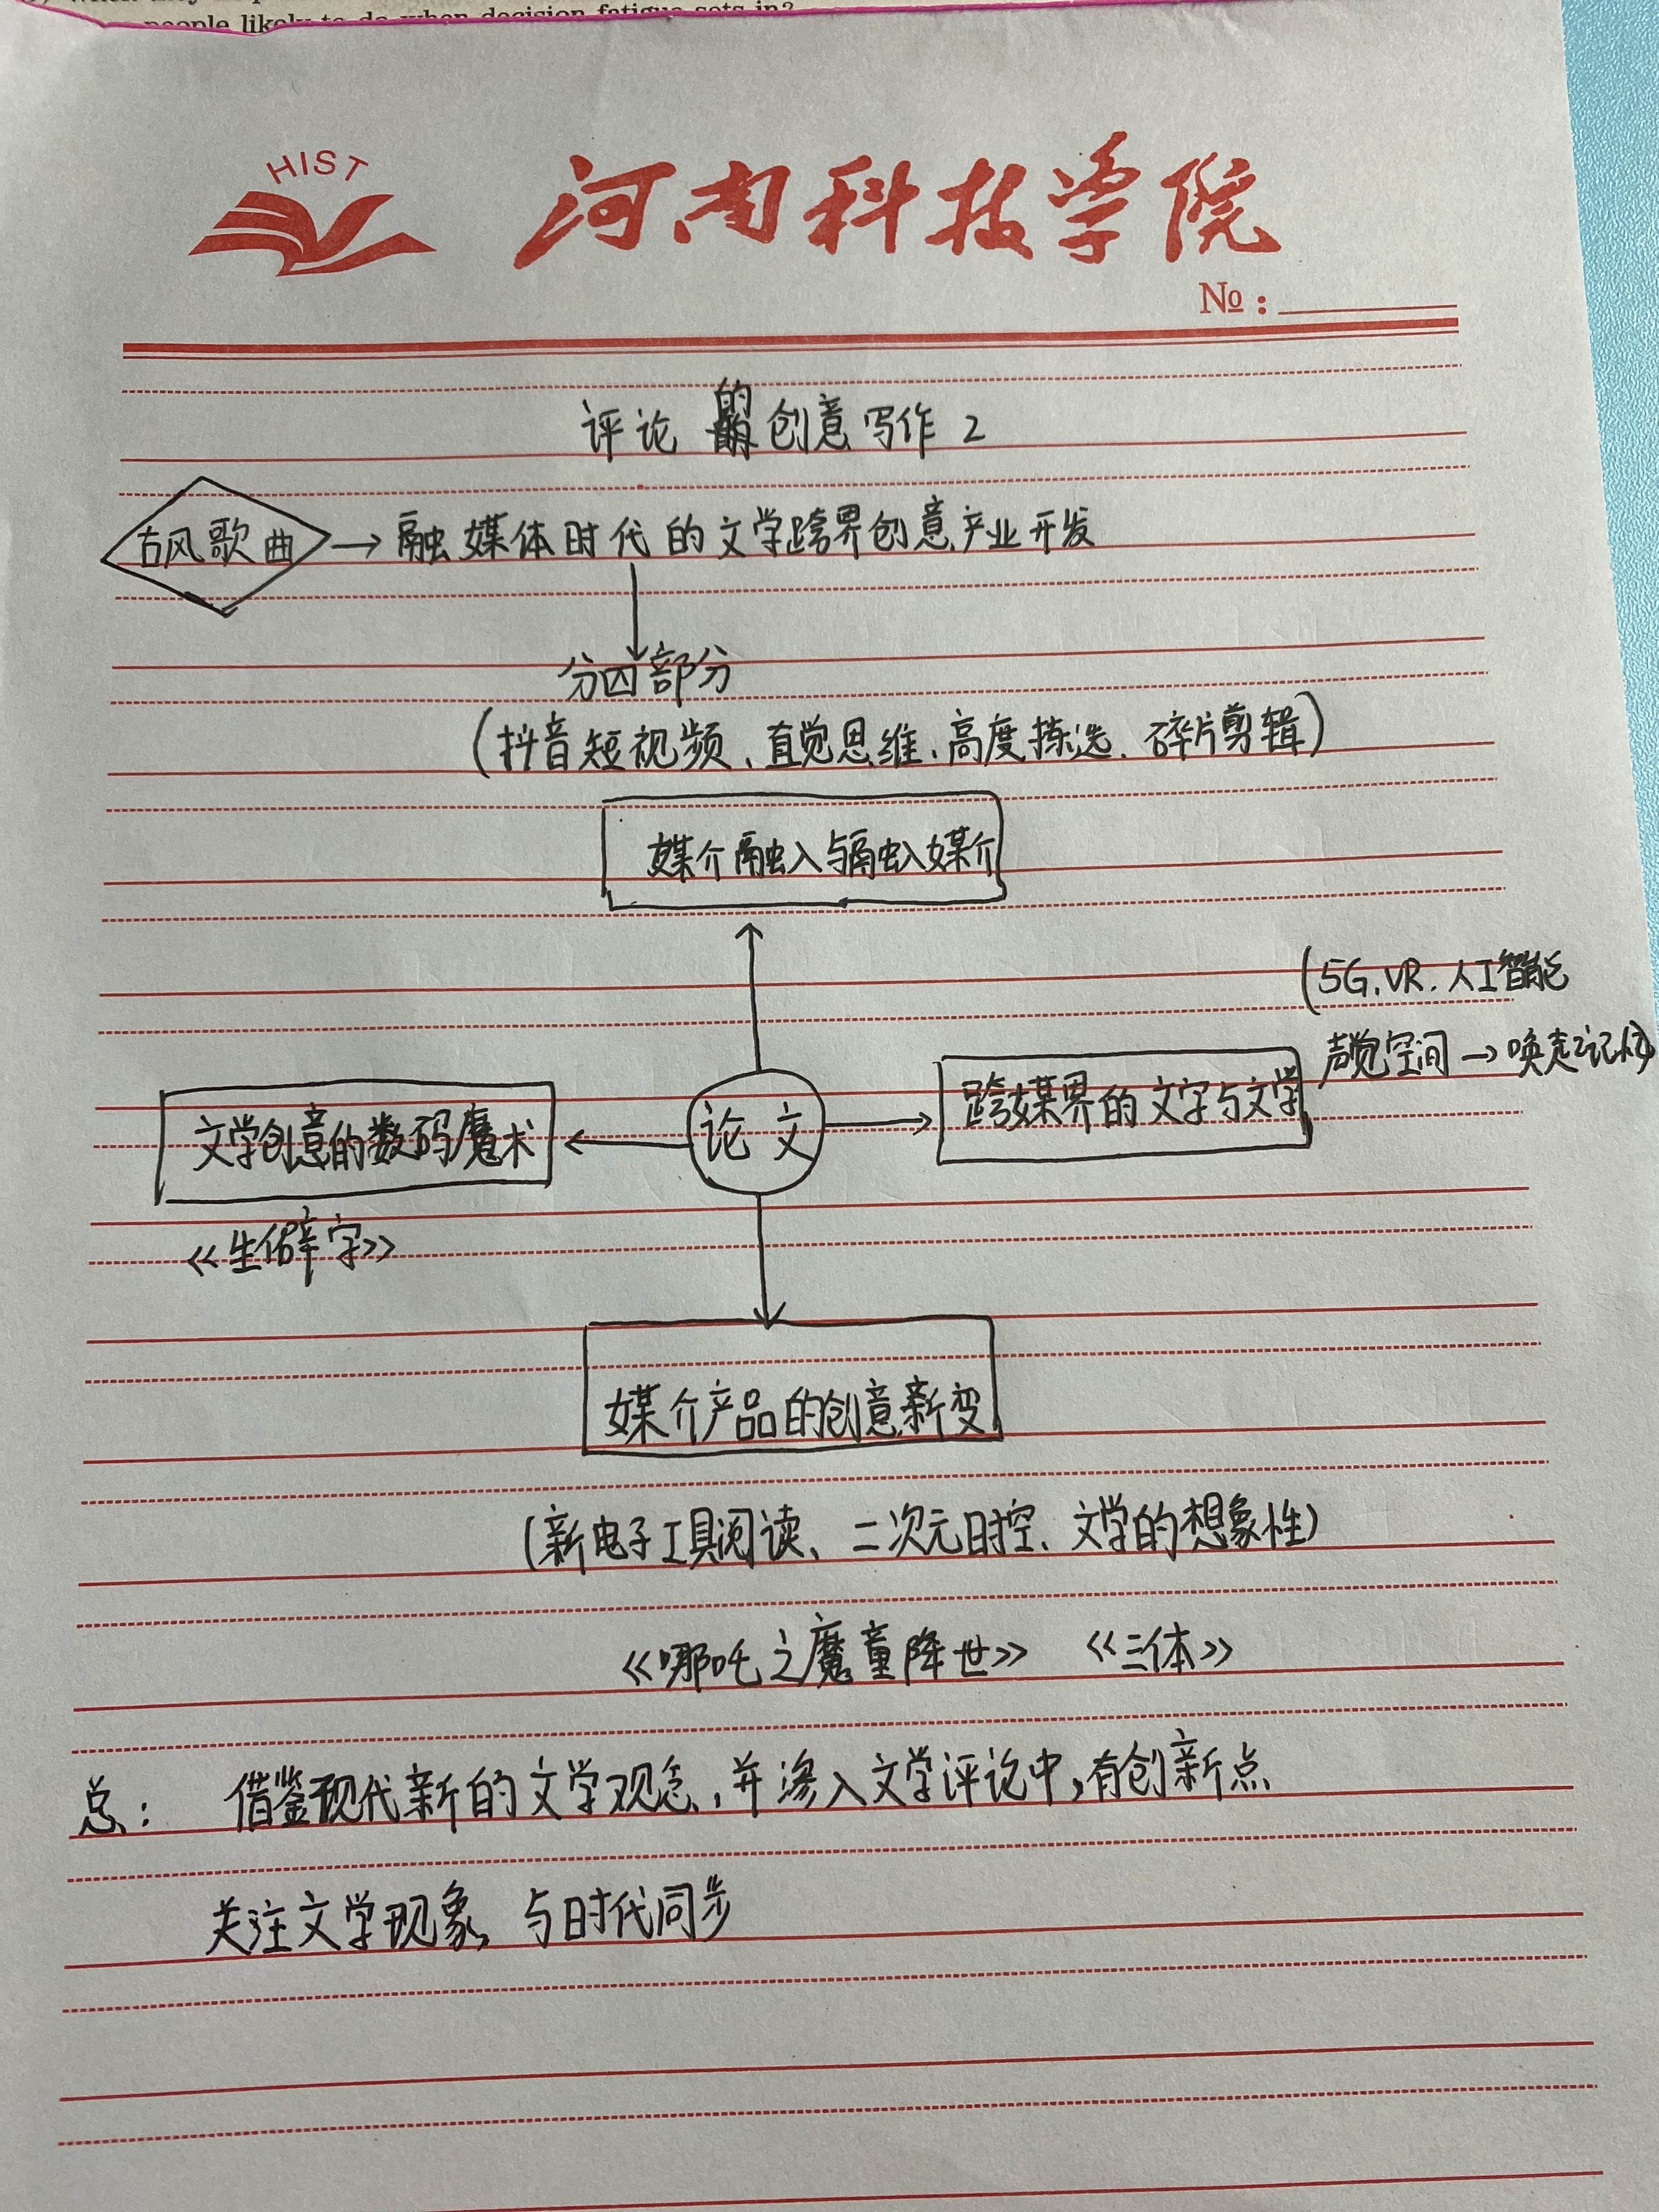 people likely to do when decision fatigue sets in?
HIST
河南科技学院
№:
评论的创意写作2
古风歌曲 → 融媒体时代的文学跨界创意产业开发
分四部分
(抖音短视频、直觉思维、高度拣选、碎片剪辑)
媒介融入与融入媒介
(5G、VR、人工智能
声觉空间→唤起记忆)
跨媒界的文字与文学
论文
文学创意的数码魔术
《生僻字》
媒介产品的创意新变
(新电子工具阅读、二次元时空、文学的想象性)
《哪吒之魔童降世》 《三体》
总: 借鉴现代新的文学观念,并渗入文学评论中,有创新点
关注文学现象,与时代同步